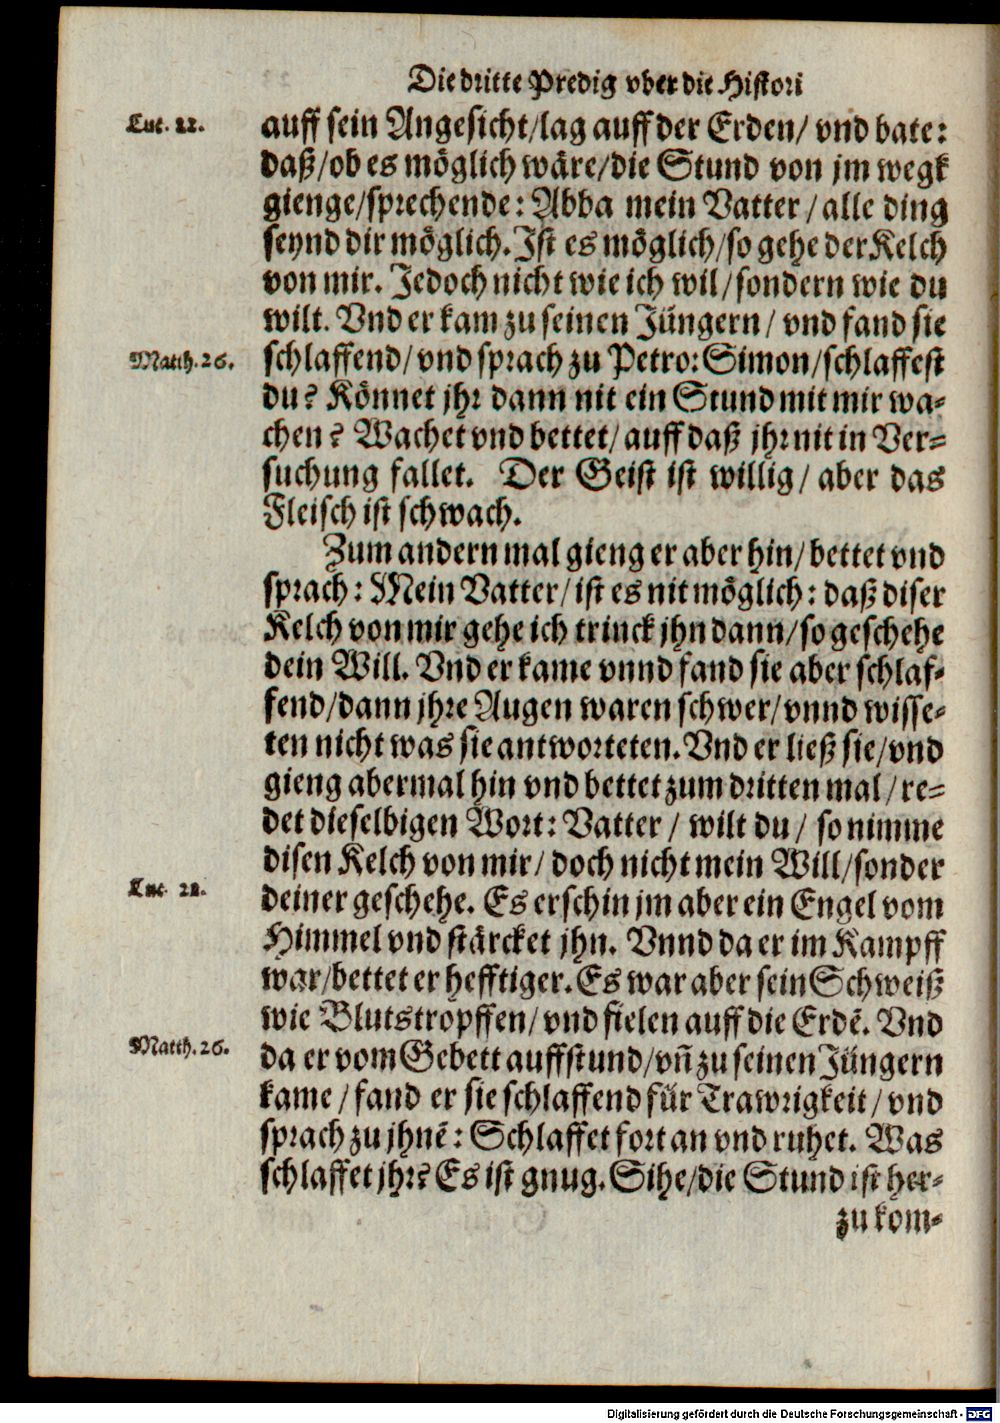 Die dritte Predig vber die Histori
Luc. 22.
auff sein Angesicht/lag auff der Erden/ vnd bate:
daß/ob es möglich wäre/die Stund von jm wegk
gienge/sprechende: Abba mein Vatter/alle ding
seynd dir möglich. Ist es möglich/so gehe der Kelch
von mir. Jedoch nicht wie ich wil/sondern wie du
wilt. Vnd er kam zu seinen Jüngern/ vnd fand sie
Matth. 26.
schlaffend/vnd sprach zu Petro: Simon/schlaffest
du? Könnet jhr dann nit ein Stund mit mir wa-
chen? Wachet vnd bettet/auff daß jhr nit in Ver-
suchung fallet. Der Geist ist willig/ aber das
Fleisch ist schwach.
Zum andern mal gieng er aber hin/bettet vnd
sprach: Mein Vatter/ist es nit möglich: daß diser
Kelch von mir gehe ich trinck jhn dann/so geschehe
dein Will. Vnd er kame vnnd fand sie aber schlaf-
fend/dann jhre Augen waren schwer/vnnd wisse-
ten nicht was sie antworteten. Vnd er ließ sie/vnd
gieng abermal hin vnd bettet zum dritten mal/re-
det dieselbigen Wort: Vatter/ wilt du/ so nimme
disen Kelch von mir/ doch nicht mein Will/sonder
Luc. 22.
deiner geschehe. Es erschin jm aber ein Engel vom
Himmel vnd stärcket jhn. Vnnd da er im Kampff
war/bettet er hefftiger. Es war aber sein Schweiß
wie Blutstropffen/ vnd fielen auff die Erdē. Vnd
Matth. 26.
da er vom Gebett auffstund/vn̄ zu seinen Jüngern
kame/fand er sie schlaffend für Trawrigkeit/vnd
sprach zu jhnē: Schlaffet fort an vnd ruhet. Was
schlaffet jhr? Es ist gnug. Sihe/die Stund ist her-
zu kom-
Digitalisierung gefördert durch die Deutsche Forschungsgemeinschaft - DFG